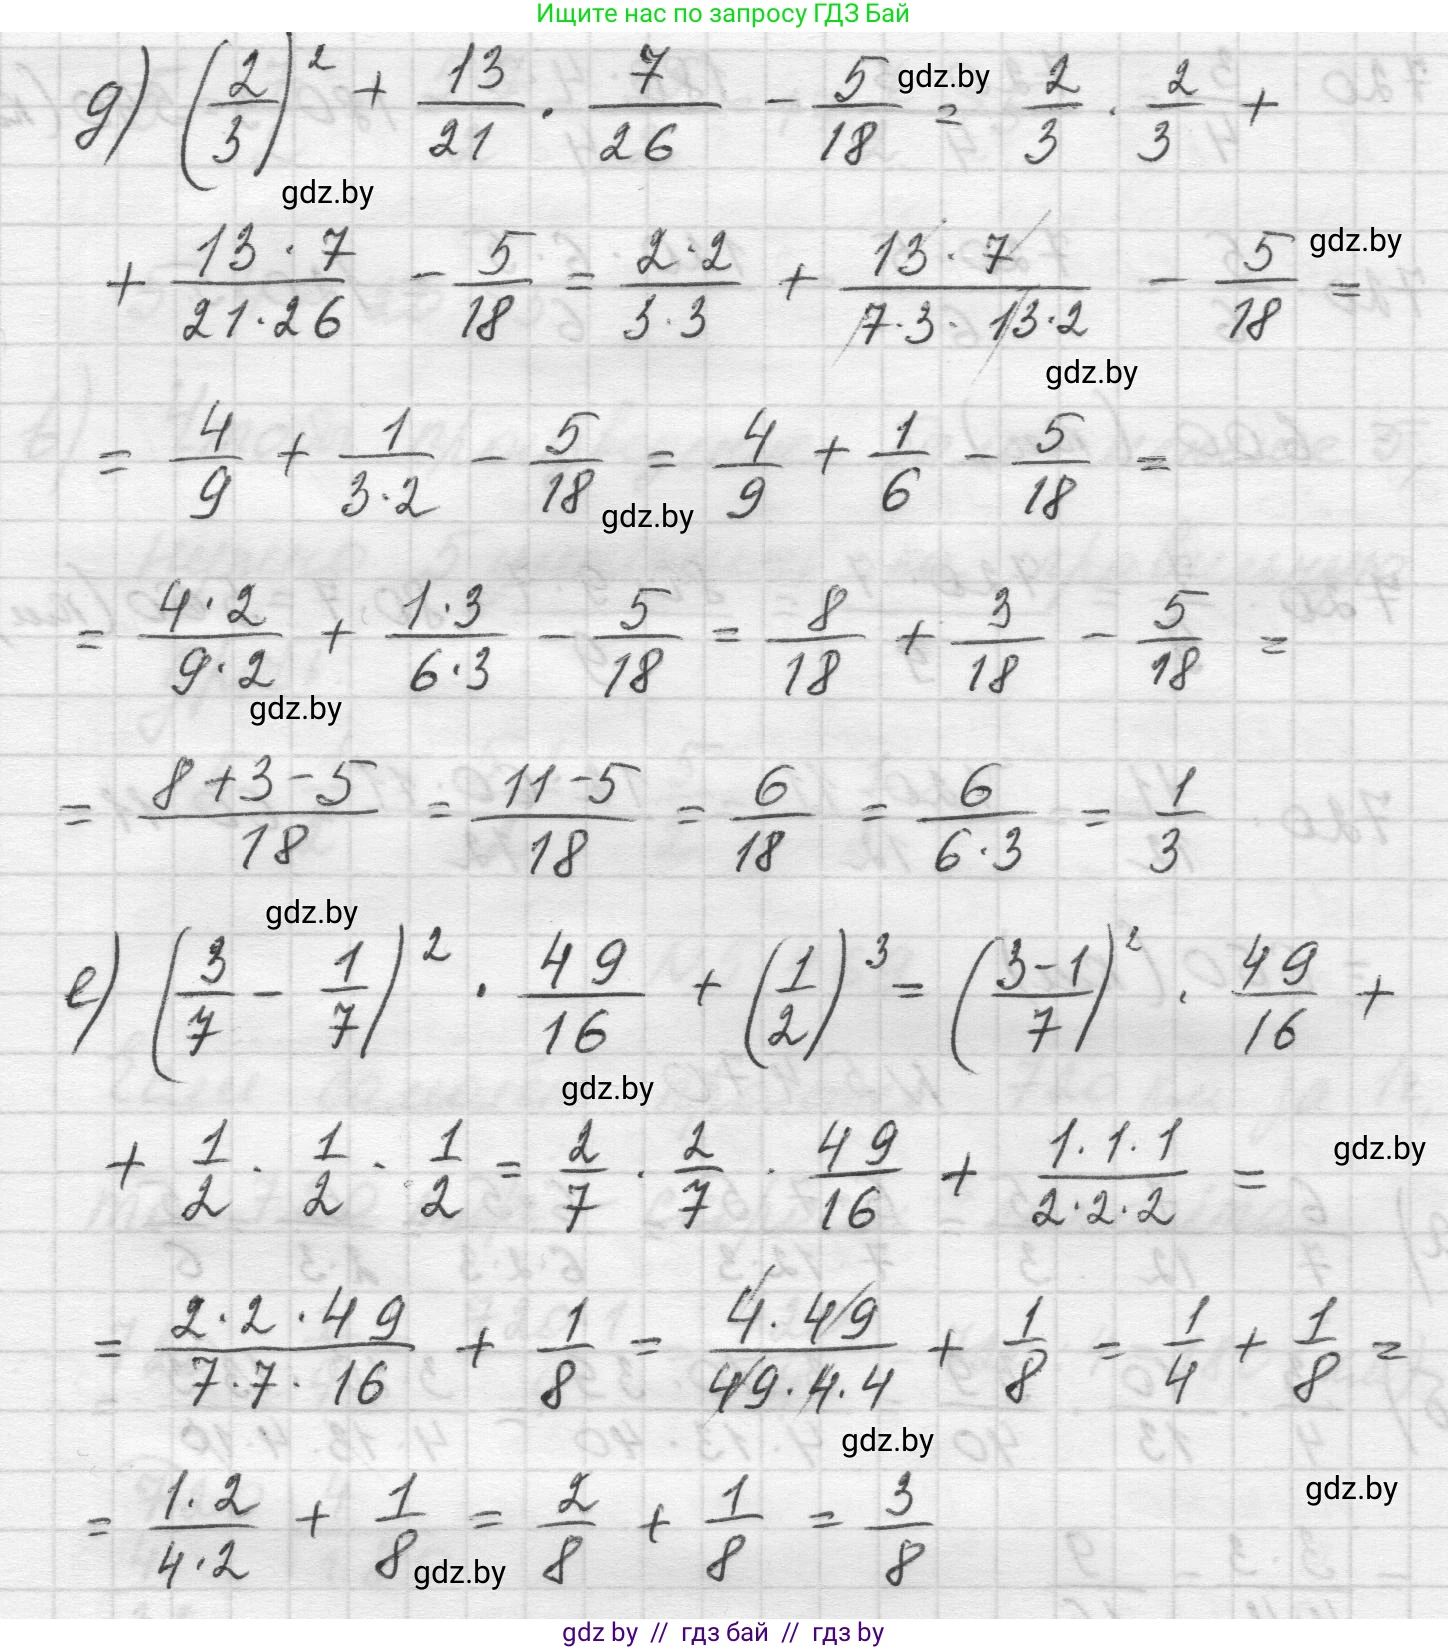 Ищите нас по запросу ГДЗ Бай
д) (2/3)² + 13/21 · 7/26 - 5/18 = 2/3 · 2/3 +
gdz.by
gdz.by
+ (13 · 7)/(21 · 26) - 5/18 = (2 · 2)/(3 · 3) + (13 · 7)/(7 · 3 · 13 · 2) - 5/18 =
gdz.by
gdz.by
= 4/9 + 1/(3 · 2) - 5/18 = 4/9 + 1/6 - 5/18 =
gdz.by
= (4 · 2)/(9 · 2) + (1 · 3)/(6 · 3) - 5/18 = 8/18 + 3/18 - 5/18 =
gdz.by
= (8 + 3 - 5)/18 = (11 - 5)/18 = 6/18 = 6/(6 · 3) = 1/3
gdz.by
е) (3/7 - 1/7)² · 49/16 + (1/2)³ = ((3 - 1)/7)² · 49/16 +
gdz.by
+ 1/2 · 1/2 · 1/2 = 2/7 · 2/7 · 49/16 + (1 · 1 · 1)/(2 · 2 · 2) =
gdz.by
= (2 · 2 · 49)/(7 · 7 · 16) + 1/8 = (4 · 49)/(49 · 4 · 4) + 1/8 = 1/4 + 1/8 =
gdz.by
= (1 · 2)/(4 · 2) + 1/8 = 2/8 + 1/8 = 3/8
gdz.by
gdz.by
gdz by // гдз бай // гдз by